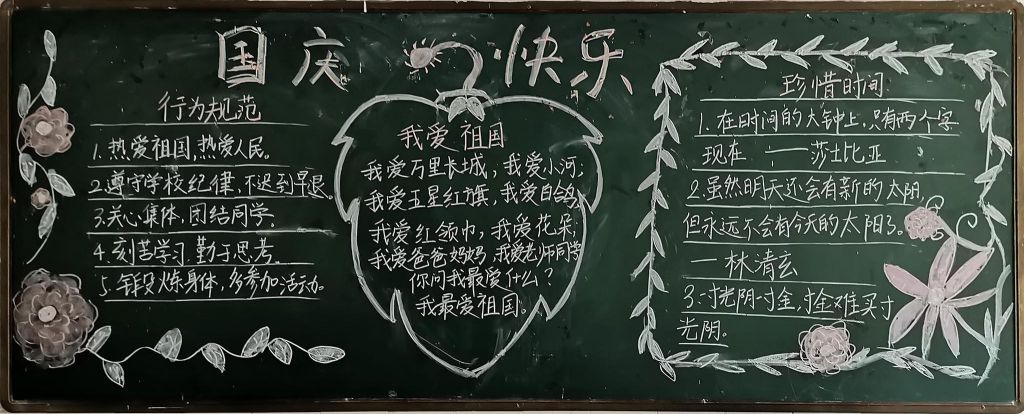 国庆快乐
行为规范
1.热爱祖国,热爱人民。
2.遵守学校纪律,不迟到早退
3.关心集体,团结同学。
4.刻苦学习 勤于思考.
5.锻炼身体,多参加活动。
我爱祖国
我爱万里长城,我爱小河;
我爱五星红旗,我爱白鸽,
我爱红领巾,我爱花朵,
我爱爸爸妈妈,我爱老师同学
你问我最爱什么?
我最爱祖国。
珍惜时间
1.在时间的大钟上,只有两个字
现在 ——莎士比亚
2.虽然明天还会有新的太阳,
但永远不会有今天的太阳了。
—林清玄
3.一寸光阴一寸金,寸金难买寸
光阴。